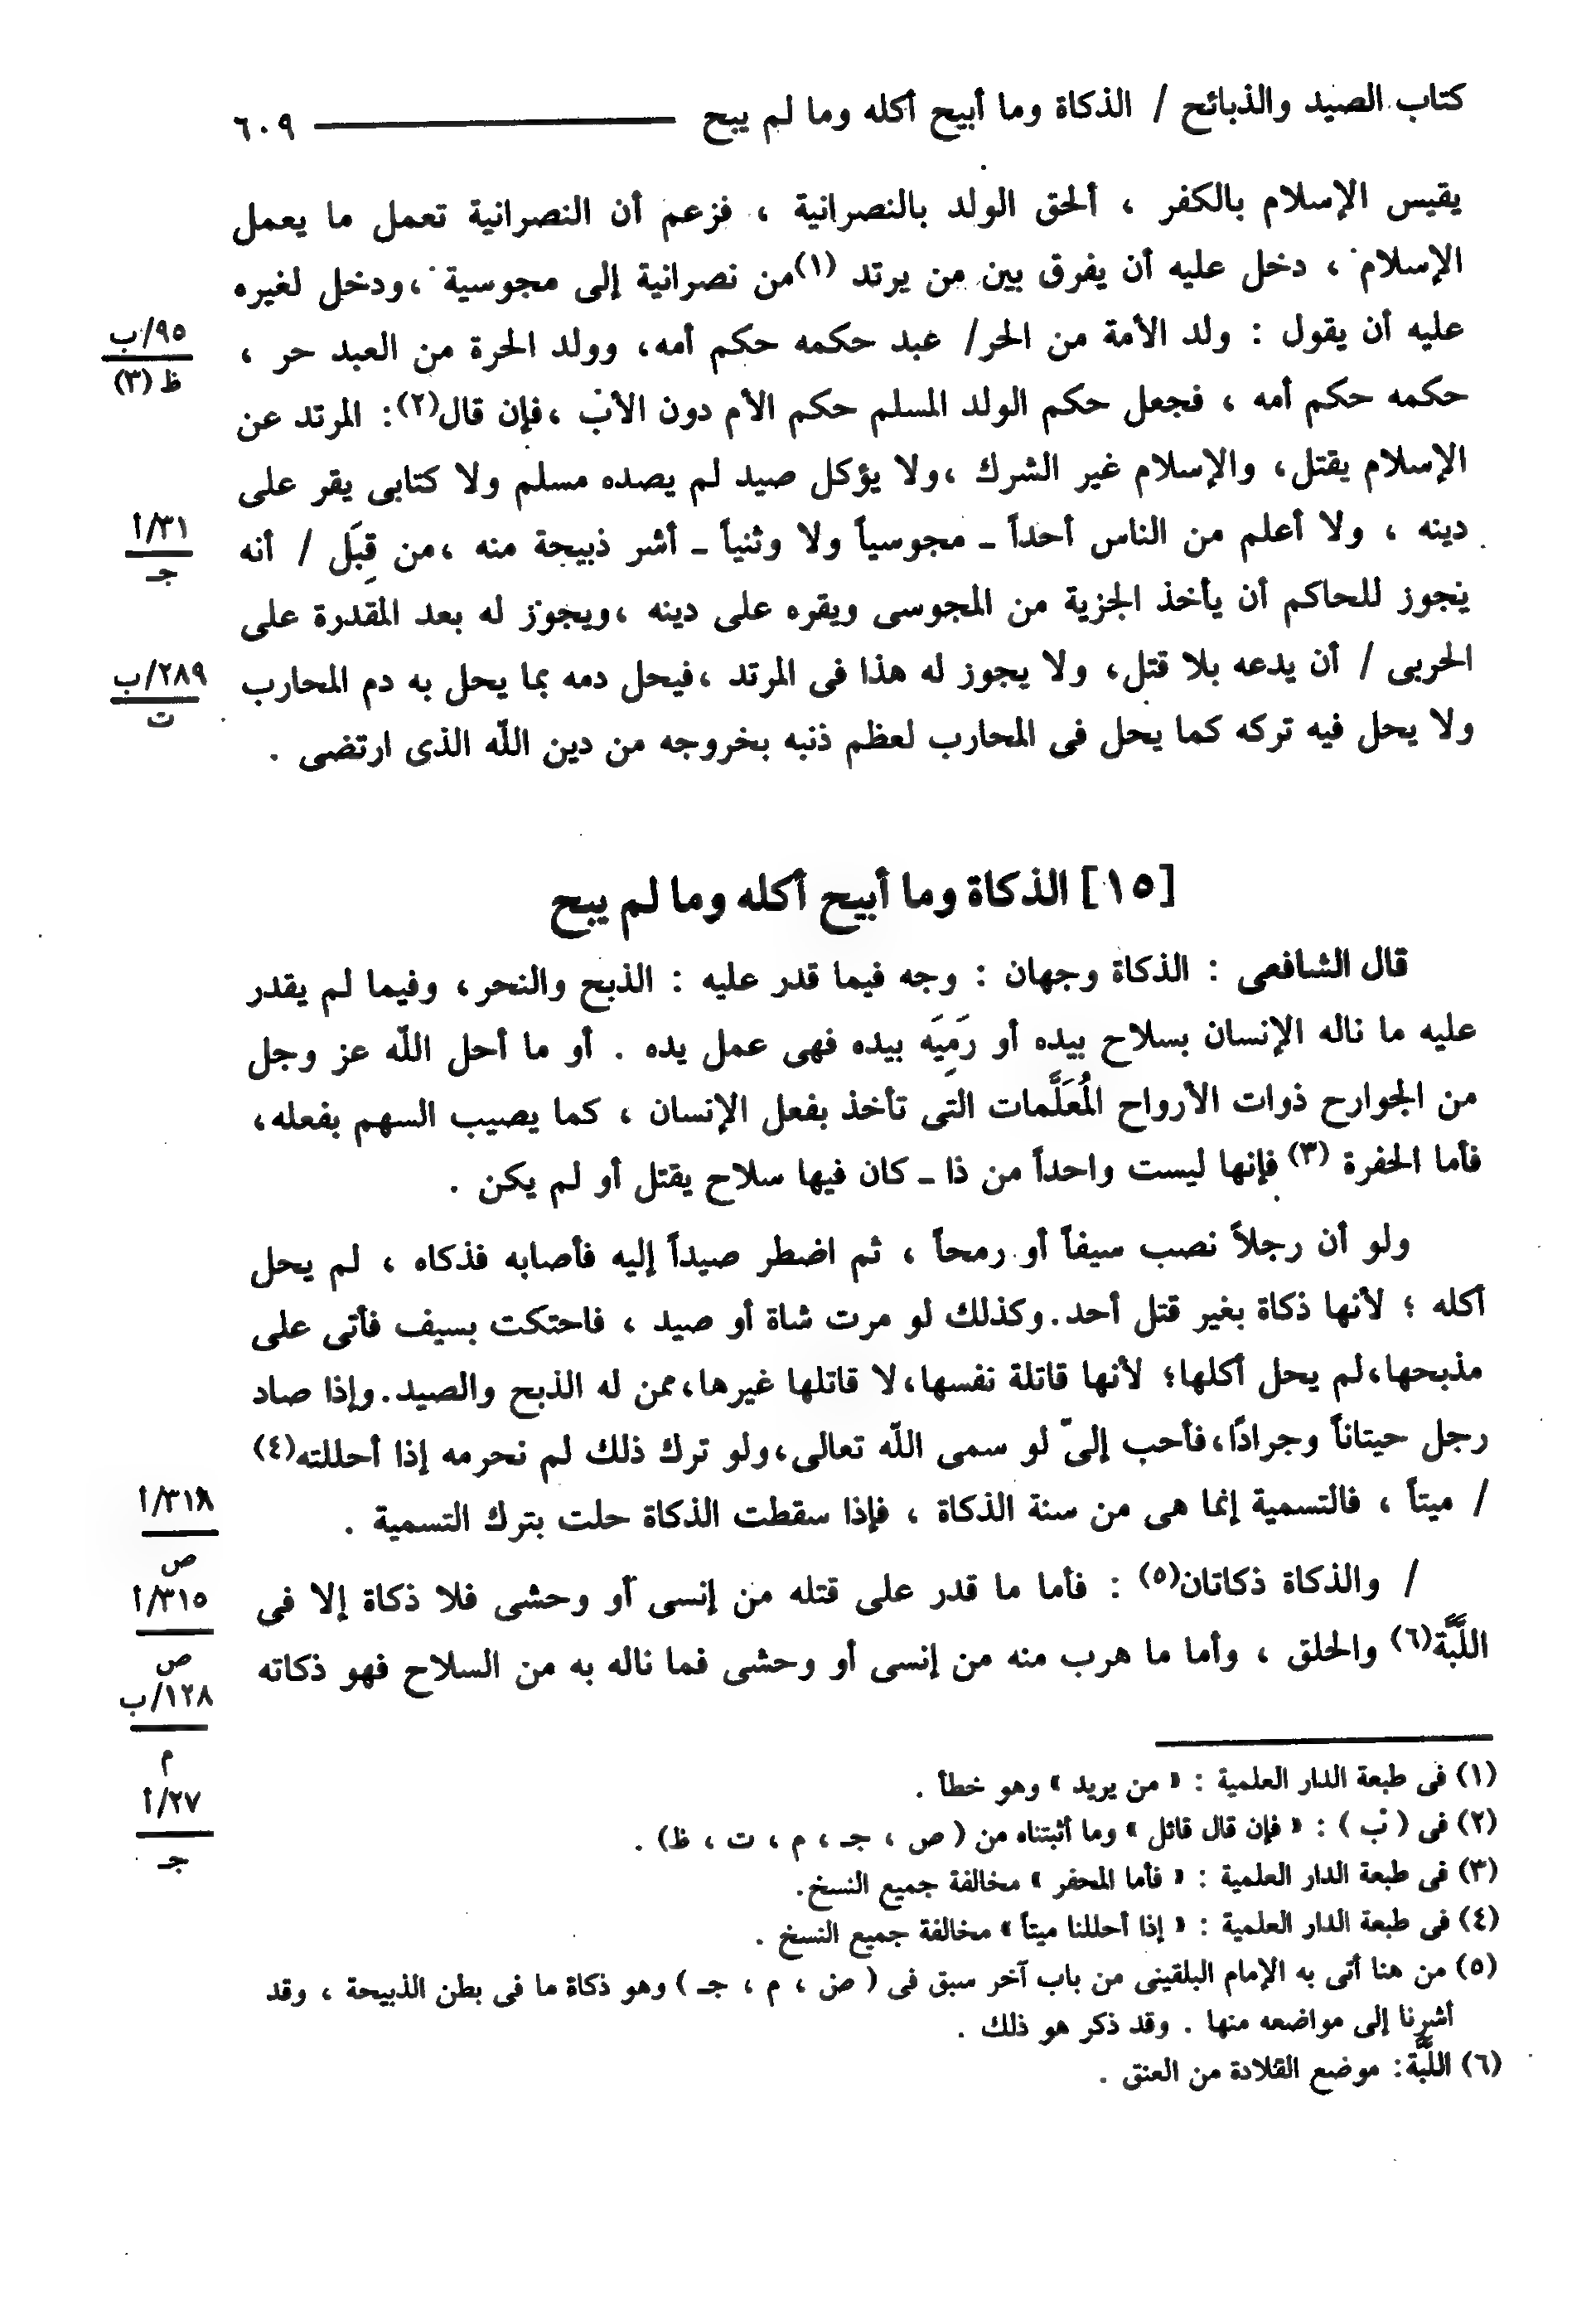 كتاب الصيد والذبائح / الذكاة وما أبيح أكله وما لم يبح ٦٠٩
يقيس الإسلام بالكفر ، ألحق الولد بالنصرانية ، فزعم أن النصرانية تعمل ما يعمل
الإسلام ، دخل عليه أن يفرق بين من يرتد (١) من نصرانية إلى مجوسية ،ودخل لغيره
عليه أن يقول : ولد الأمة من الحر/ عبد حكمه حكم أمه، وولد الحرة من العبد حر ،
٩٥/ب
ظ (٣)
حكمه حكم أمه ، فجعل حكم الولد المسلم حكم الأم دون الأب ،فإن قال(٢): المرتد عن
الإسلام يقتل، والإسلام غير الشرك ،ولا يؤكل صيد لم يصده مسلم ولا كتابى يقر على
دينه ، ولا أعلم من الناس أحداً ـ مجوسياً ولا وثنياً ـ أشر ذبيحة منه ،من قِبَلِ / أنه
٣١/أ
جـ
يجوز للحاكم أن يأخذ الجزية من المجوسى ويقره على دينه ،ويجوز له بعد المقدرة على
الحربى / أن يدعه بلا قتل، ولا يجوز له هذا فى المرتد ،فيحل دمه بما يحل به دم المحارب
٢٨٩/ب
ت
ولا يحل فيه تركه كما يحل فى المحارب لعظم ذنبه بخروجه من دين اللّه الذى ارتضى .
[١٥] الذكاة وما أبيح أكله وما لم يبح
قال الشافعى : الذكاة وجهان : وجه فيما قدر عليه : الذبح والنحر، وفيما لم يقدر
عليه ما ناله الإنسان بسلاح بيده أو رَمِيَه بيده فهى عمل يده . أو ما أحل اللّه عز وجل
من الجوارح ذوات الأرواح المُعَلَّمات التى تأخذ بفعل الإنسان ، كما يصيب السهم بفعله،
فأما الحفرة (٣) فإنها ليست واحداً من ذا ـ كان فيها سلاح يقتل أو لم يكن .
ولو أن رجلاً نصب سيفاً أو رمحاً ، ثم اضطر صيداً إليه فأصابه فذكاه ، لم يحل
أكله ؛ لأنها ذكاة بغير قتل أحد.وكذلك لو مرت شاة أو صيد ، فاحتكت بسيف فأتى على
مذبحها،لم يحل أكلها؛ لأنها قاتلة نفسها،لا قاتلها غيرها،ممن له الذبح والصيد.وإذا صاد
رجل حيتاناً وجرادًا،فأحب إلىّ لو سمى اللّه تعالى،ولو ترك ذلك لم نحرمه إذا أحللته(٤)
/ ميتاً ، فالتسمية إنما هى من سنة الذكاة ، فإذا سقطت الذكاة حلت بترك التسمية .
٣١٨/أ
ص
/ والذكاة ذكاتان(٥) : فأما ما قدر على قتله من إنسى أو وحشى فلا ذكاة إلا فى
٣١٥/أ
ص
١٢٨/ب
م
٢٧/أ
جـ
اللَّبَّة(٦) والحلق ، وأما ما هرب منه من إنسى أو وحشى فما ناله به من السلاح فهو ذكاته
(١) فى طبعة الدار العلمية : « من يريد » وهو خطأ .
(٢) فى ( ب ) : « فإن قال قائل » وما أثبتناه من ( ص ، جـ ، م ، ت ، ظ) .
(٣) فى طبعة الدار العلمية : « فأما المحفر » مخالفة جميع النسخ.
(٤) فى طبعة الدار العلمية : « إذا أحللنا ميتاً » مخالفة جميع النسخ .
(٥) من هنا أتى به الإمام البلقينى من باب آخر سبق فى ( ص ، م ، جـ ) وهو ذكاة ما فى بطن الذبيحة ، وقد
أشرنا إلى مواضعه منها . وقد ذكر هو ذلك .
(٦) اللَّبَّة: موضع القلادة من العنق .